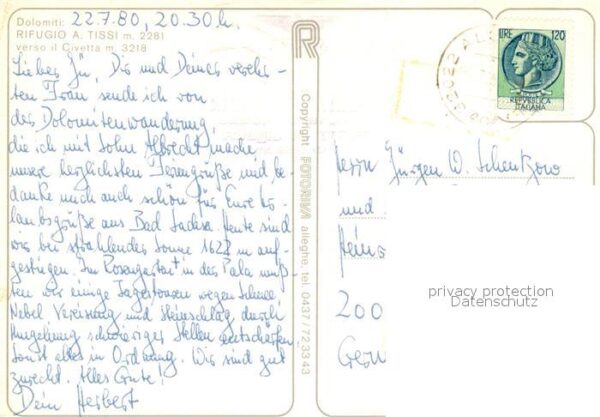 Dolomiti: 22.7.80, 20.30 h.
RIFUGIO A. TISSI m. 2281
verso il Civetta m. 3218
Lieber Jü, Dir und Deiner verehr-
ten Frau sende ich von
der Dolomitenwanderung,
die ich mit Sohn Albrecht mache
unsere herzlichsten Feriengrüße und be-
danke mich auch schön für Eure Ur-
laubsgrüße aus Bad Sachsa. Heute sind
wir bei strahlender Sonne 1622 m auf-
gestiegen. Im Rosengarten in der Pala muß-
ten wir einige Tagestouren wegen Schnee,
Nebel Vereisung und Steinschlag durch
Umgehung schwieriger Stellen entschärfen
sonst alles in Ordnung. Wir sind gut
zurecht. Alles Gute!
Dein Herbert
Copyright FOTORIVA alleghe, tel. 0437/723343
R
LIRE 120
REPUBBLICA
ITALIANA
32022
Herrn Jürgen W. Schenkzow
und
Heins
200
Germ
privacy protection
Datenschutz